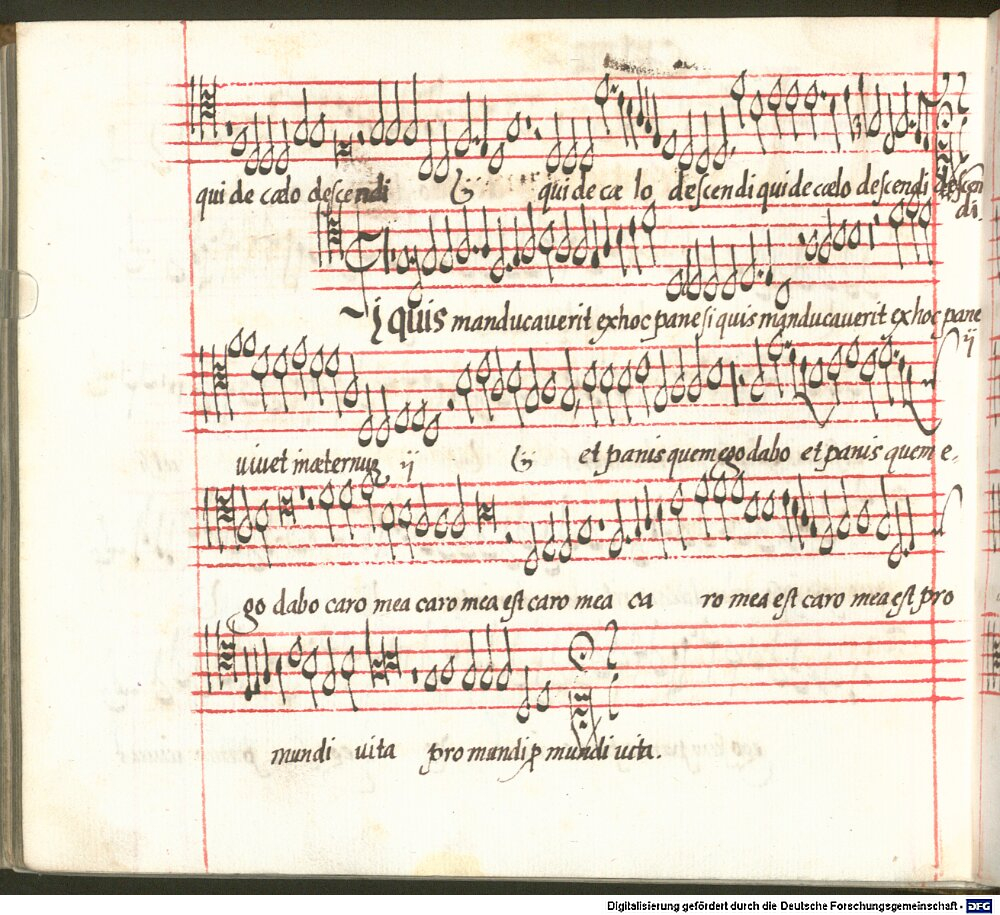 qui de cælo descendi ij qui de cæ lo descendi qui de cælo descendi descen
di
Si quis manducaverit ex hoc pane si quis manducaverit ex hoc pane
ij
vivet in æternuz ij ij et panis quem ego dabo et panis quem e-
go dabo caro mea caro mea est caro mea ca ro mea est caro mea est pro
mundi vita pro mundi p mundi vita.
Digitalisierung gefördert durch die Deutsche Forschungsgemeinschaft - DFG